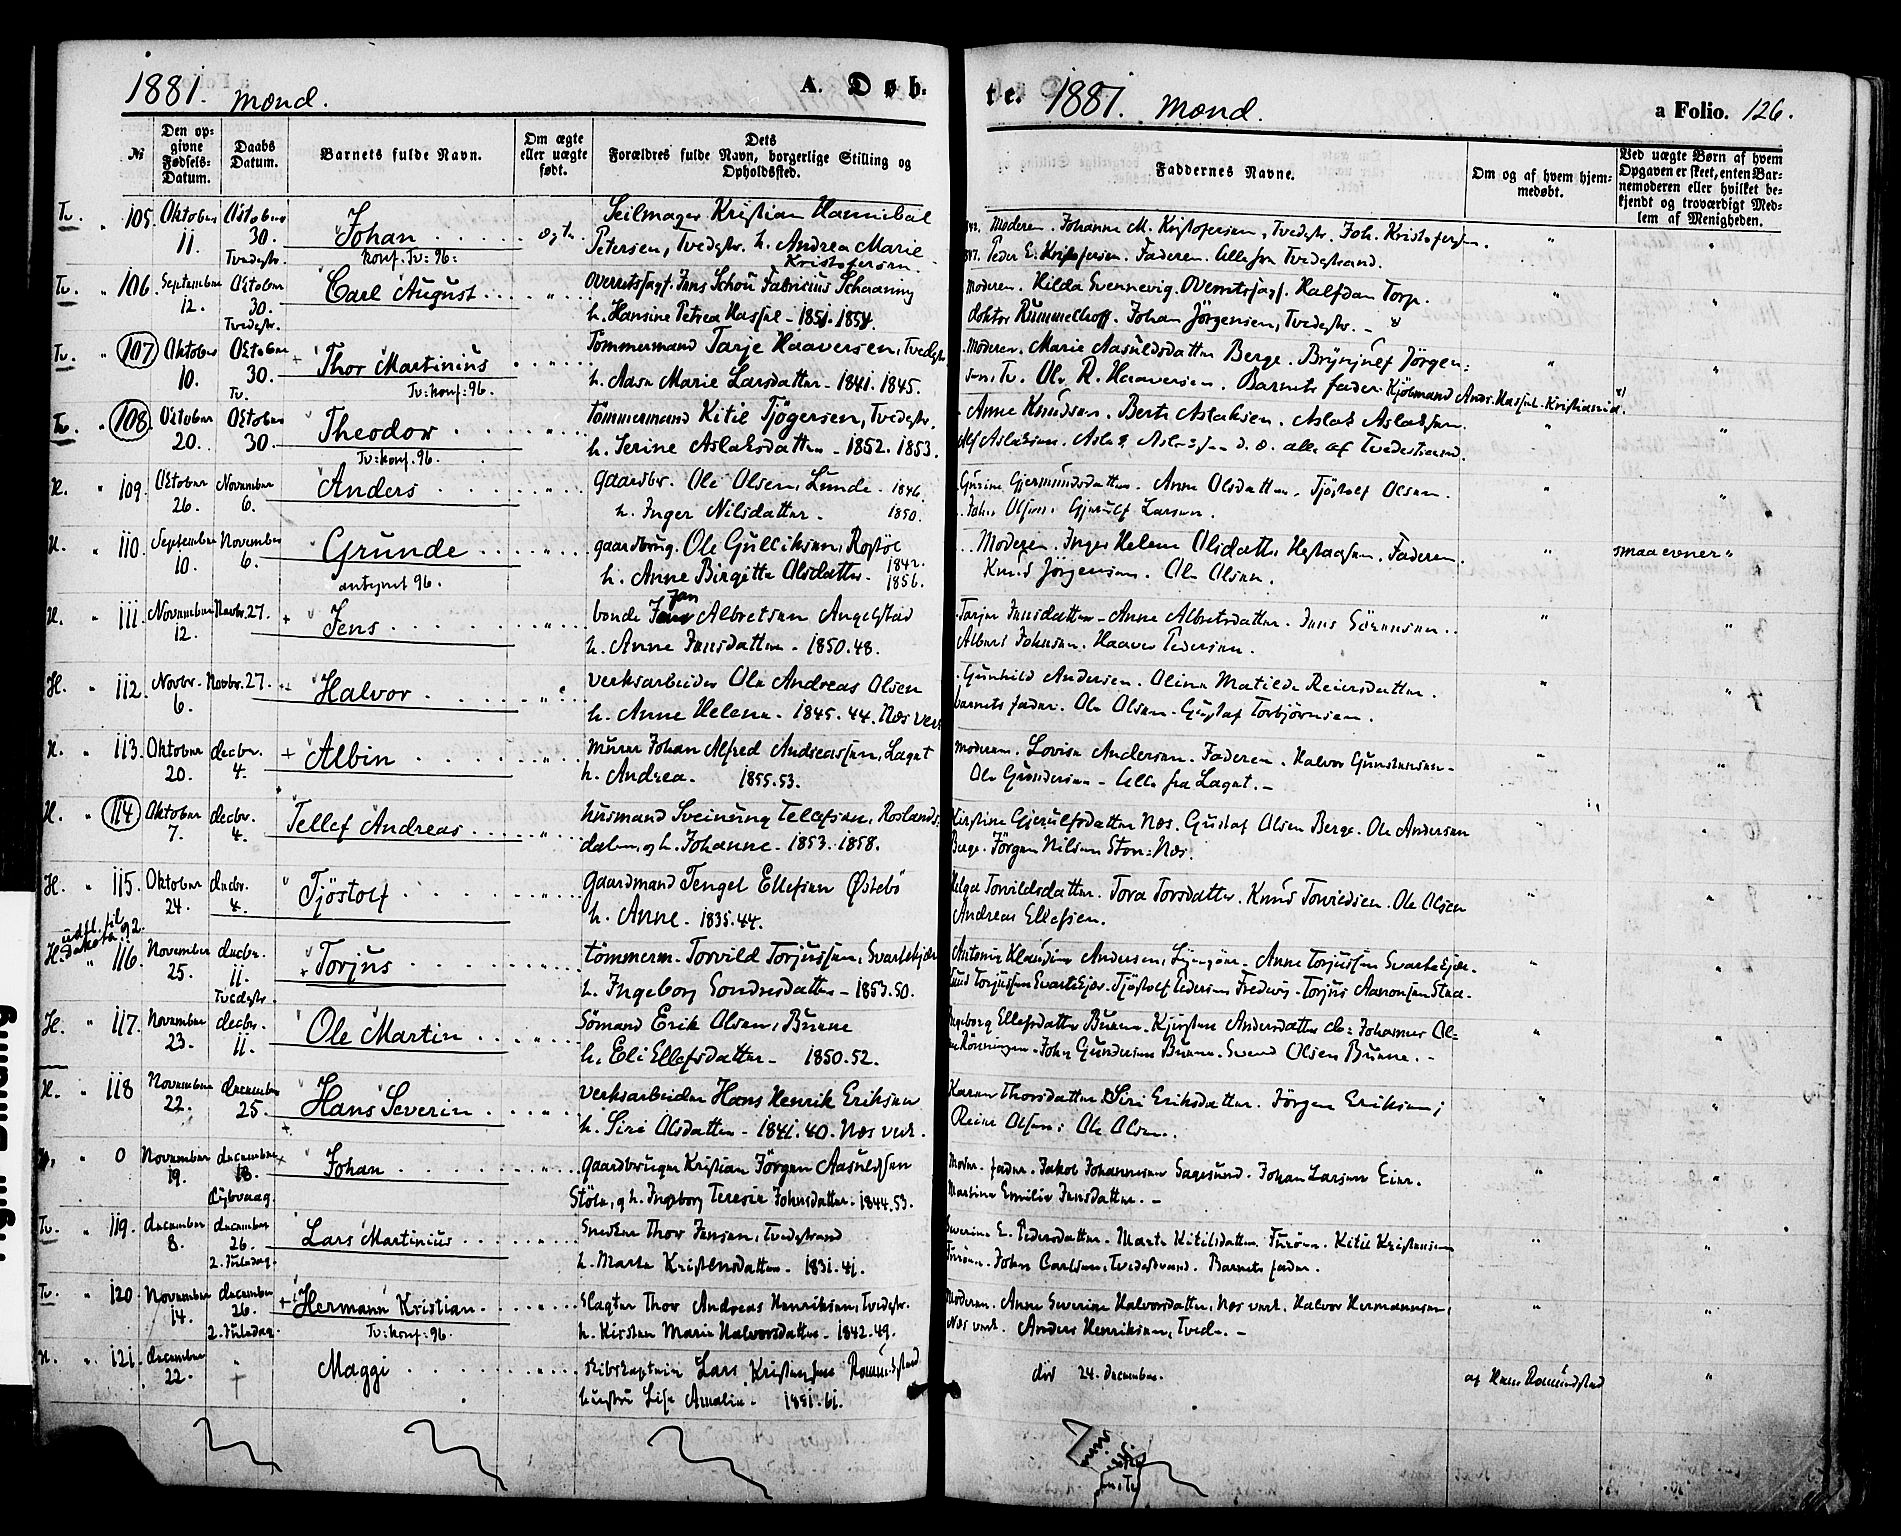 1881. Mænd. A. Døb-
№
Den op-
givne
Fødsels-
Datum.
Daabs
Datum.
Barnets fulde Navn.
Om ægte
eller uægte
født.
Dets
Forældres fulde Navn, borgerlige Stilling og
Opholdssted.
Tv. " 105. Oktober 11. Oktober 30. Tvedestr. Johan ægte Seilmager Kristian Hannibal
konf. Tv: 96: Petersen, Tvedestr. h. Andrea Marie
Kristofersen.
Tv. " 106. September 12. Oktober 30. Tvedestr. Carl August " Overretssagf. Jens Schou Fabricius Schanning
h. Hansine Petrea Hassel - 1851. 1854.
Tv. " 107 Oktober 10. Oktober 30. Tv. + Thor Martinius " Tömmermand Tarje Haaversen, Tvedestr
Tv: konf: 96. h. Aase Marie Larsdatter - 1841. 1845.
Tv. " 108. Oktober 20. Oktober 30. Theodor " tömmermand Kitil Tjögersen, Tvedestr.
Tv: konf. 96. h. Serine Aslaksdatter - 1852. 1853.
H. " 109. Oktober 26. November 6. Anders " gaardbr. Ole Olsen, Lunde - 1846.
h. Inger Nilsdatter - 1850.
H. " 110. September 10. November 6. Grunde " gaardbrug. Ole Gulliksen, Rostöl 1842.
antegnet 96. h. Anne Birgitte Olsdatter - 1856.
H. " 111. November 12. Novbr. 27. + Jens " bonde Jan Albretsen Angelstad
h. Anne Jensdatter - 1850. 48.
H. " 112. Novbr. 6. Novbr. 27. Halvor " Verksarbeider Ole Andreas Olsen
h. Anne Helene - 1845. 44. Næs verk
H. " 113. Oktober 20. decbr. 4. + Albin " Murer Johan Alfred Andreassen, Laget
h. Andrea. 1855. 53.
H. " 114 Oktober 7. decbr. 4. Tellef Andreas " husmand Sveinung Tellefsen, Roslands-
dalen, og h. Johanne - 1853. 1858.
H. " 115. Oktober 24. decbr. 4. Tjöstolf " Gaardmand Tengel Ellefsen Østebö
h. Anne - 1835. 44.
udfl. til
Dakota 92.
H. " 116. November 25. decbr. 11. Tvedestr. + Torjus " tömmerm. Torvild Torjussen, Svartekjær
h. Ingeborg Gondersdatter - 1853. 50.
H. " 117. November 23. decbr. 11. Ole Martin " Sömand Erik Olsen, Bunne
h. Eli Ellefsdatter - 1850. 52.
H. " 118 November 22. december 25. Hans Severin " Verksarbeider Hans Henrik Eriksen
h. Siri Olsdatter - 1841. 40. Næs verk.
" 0 November 19. december 18. Dybvaag Johan " Gaardbruger Kristian Jörgen Aasuldsen
Stöle, og h. Ingeborg Teresie Johnsdatter - 1844. 53.
Tv. " 119. december 8. december 26. 2. Juledag. Lars Martinius " Snedker Thor Jensen, Tvedestrand
h. Marte Kristensdatter - 1831. 41.
Tv. " 120 November 14. december 26. 2. Juledag. + Hermann Kristian " Slagter Thor Andreas Henriksen, Tvedestr.
Tv: konf: 96. h. Kirsten Marie Halvorsdatter - 1842. 49.
H. " 121. december 22. " † Maggi " skibskaptein Lars Kristensen Ramundstad
hustru Lise Amalie - 1851. 61.
te. 1881. Mænd. a Folio. 126.
Faddernes Navne.
Om og af hvem hjem-
medøbt.
Ved uægte Børn af hvem
Opgaven er skeet, enten Bar-
nemoderen eller hvilket be-
kjendt og troværdigt Med-
lem af Menigheden.
Moderen. Johanne M. Kristofersen, Tvedestr. Joh. Kristofersen. " "
Peder E. Kristofersen. Faderen. Alle fra Tvedestrand.
Moderen. Hilda Svennevig. Overretssagf. Halfdan Torp. " "
doktor Rummelhoff. Johan Jörgensen, Tvedestr. -
Moderen. Marie Aasuldsdatter Berge. Brynjulf Jörgen- " "
sen, Tv. Ole R. Haaversen. Barnets fader. Kjöbmand Andr. Hassel. Kristiansud.
Anne Knudsen. Berte Aslaksen. Aslak Aslaksen. " "
Alf Aslaksen. d. o. alle af Tvedestrand.
Gurine Gjermundsdatter. Anne Olsdatter. Tjöstolf Olsen. " "
John Olsen. Gjerulf Larsen.
Moderen. Inger Helene Olsdatter. Faderen. " smaa evner "
Knud Jörgensen. Ole Olsen.
Tarjer Jensdatter - Anne Albretsdatter. Jens Sörensen. " "
Albert Johnsen. Haaver Pedersen.
Gunhild Andersen. Oline Matilde Reiersdatter. " "
barnets fader. Ole Olsen. Gustaf Torbjörnsen.
Moderen. Lovise Andersen. Faderen. Halvor Gunstensen - " "
Ole Gundersen - Alle fra Laget. -
Kirstine Gjerulfsdatter Næs. Gustaf Olsen Berge. Ole Andersen " "
Berge. Jörgen Nilsen Ston: Næs.
Helga Torvildsdatter. Tora Torsdatter. Knud Torvildsen. Ole Olsen " "
Andreas Ellefsen.
Antonie Klaudine Andersen, Lyngör. Anne Torjussen Svartekjær. " "
Knud Torjussen Svartekjær. Tjöstolf Pedersen Fredvig. Torjus Aaronsen Stea.
Ingeborg Ellefsdatter Bunne. Kjersten Andersdatter do: Johannes Ol- " "
sen Rönningen. John Gundersen Bunne. Svend Olsen Bunne. -
Karen Thorsdatter. Siri Eriksdatter. Jörgen Eriksen; " "
Reier Olsen; Ole Olsen.
Moder. fader. Jakob Johannesen Sagesund. Johan Larsen Eier. " "
Martine Emilie Jensdatter. -
Severine E. Pedersdatter. Marte Kitilsdatter Furöen. Kitil Kristensen " "
Furöen. John Carlsen, Tvedestrand. Barnets fader.
Moderen. Anne Severine Halvorsdatter, Næs verk. Halvor Hermannsen, " "
Næs verk. Anders Henriksen, Tvede. -
död 24. december. af Hans Ramundstad "